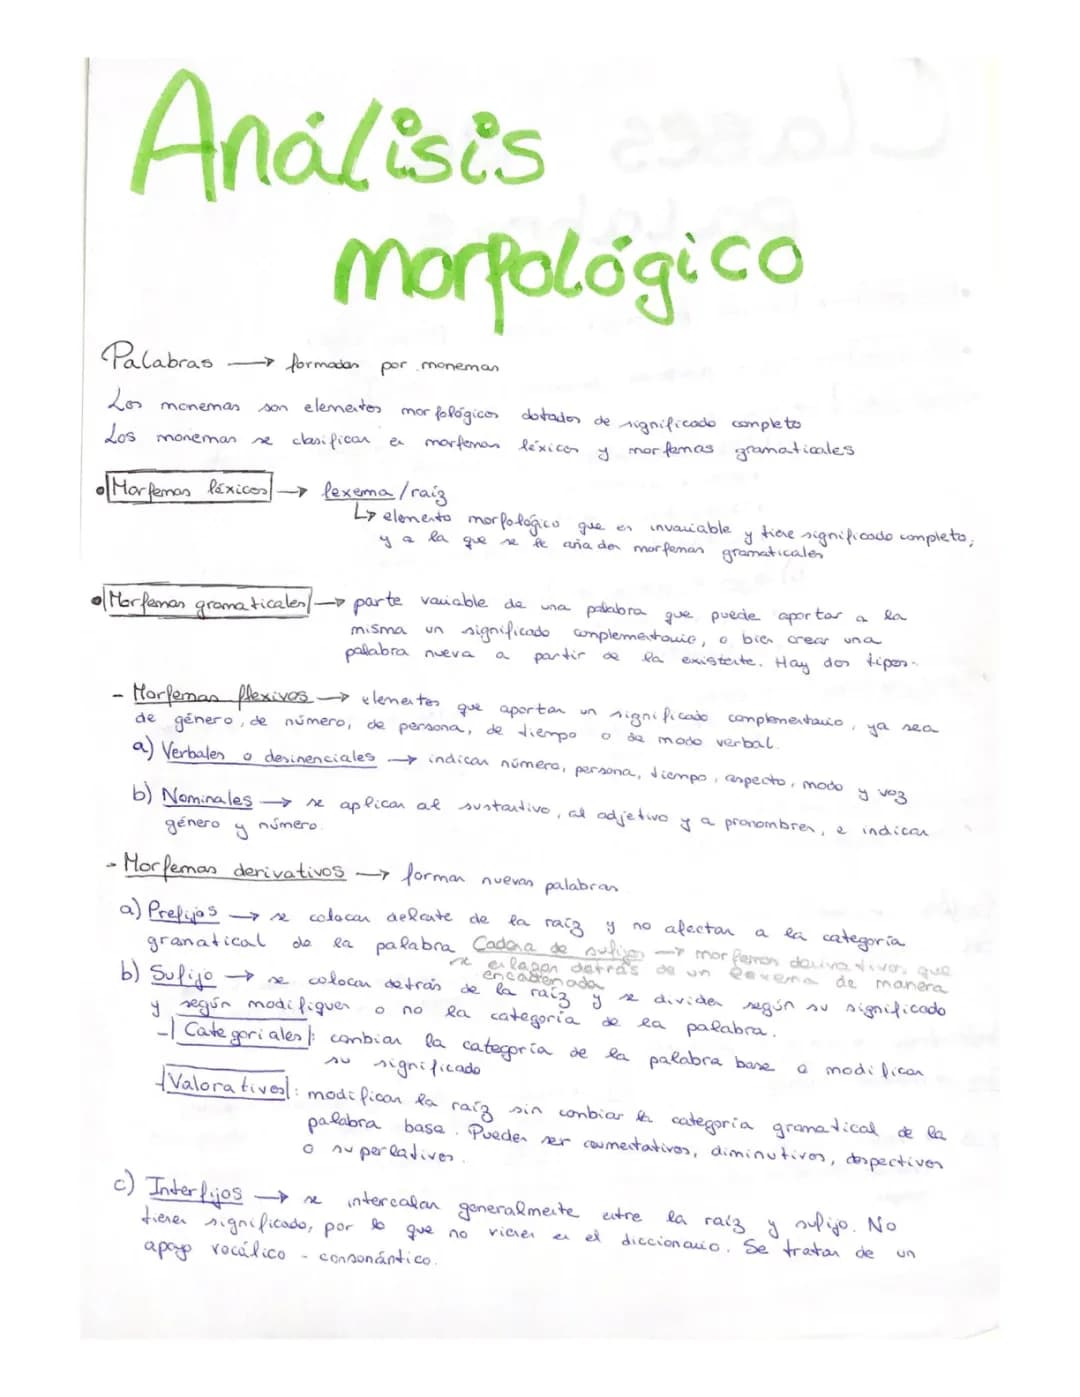 Análisis
morfológico
Palabras → formadas por monemas
Los monemas son elementos morfológicos dotados de significado completo
Los monemas se clasifican en morfemas léxicos y morfemas gramaticales
• Morfemas léxicos → lexema/raíz
↳ elemento morfológico que es invariable y tiene significado completo,
y a la que se le añaden morfemas gramaticales
• Morfemas gramaticales → parte variable de una palabra que puede aportar a la
misma un significado complementario, o bien crear una
palabra nueva a partir de la existente. Hay dos tipos.
- Morfemas flexivos → elementos que aportan un significado complementario, ya sea
de género, de número, de persona, de tiempo o de modo verbal.
a) Verbales o desinenciales → indican número, persona, tiempo, aspecto, modo y voz
b) Nominales → se aplican al sustantivo, al adjetivo y a pronombres, e indican
género y número.
- Morfemas derivativos → forman nuevas palabras
a) Prefijos → se colocan delante de la raíz y no afectan a la categoría
gramatical de la palabra Cadena de sufijos → morfemas derivativos que
se enlazan detrás de un lexema de manera
encadenada
b) Sufijo → se colocan detrás de la raíz y se dividen según su significado
y según modifiquen o no la categoría de la palabra.
- Categoriales: cambian la categoría de la palabra base o modifican
su significado
- Valorativos: modifican la raíz sin cambiar la categoría gramatical de la
palabra base. Pueden ser aumentativos, diminutivos, despectivos
o superlativos.
c) Interfijos → se intercalan generalmente entre la raíz y sufijo. No
tienen significado, por lo que no vienen en el diccionario. Se tratan de un
apoyo vocálico - consonántico.